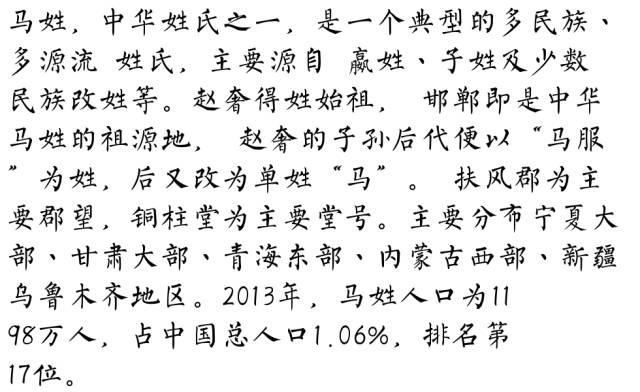 马姓，中华姓氏之一，是一个典型的多民族、
多源流 姓氏，主要源自 嬴姓、子姓及少数
民族改姓等。赵奢得姓始祖， 邯郸即是中华
马姓的祖源地， 赵奢的子孙后代便以“马服
”为姓，后又改为单姓“马”。 扶风郡为主
要郡望，铜柱堂为主要堂号。主要分布宁夏大
部、甘肃大部、青海东部、内蒙古西部、新疆
乌鲁木齐地区。2013年，马姓人口为11
98万人，占中国总人口1.06%，排名第
17位。